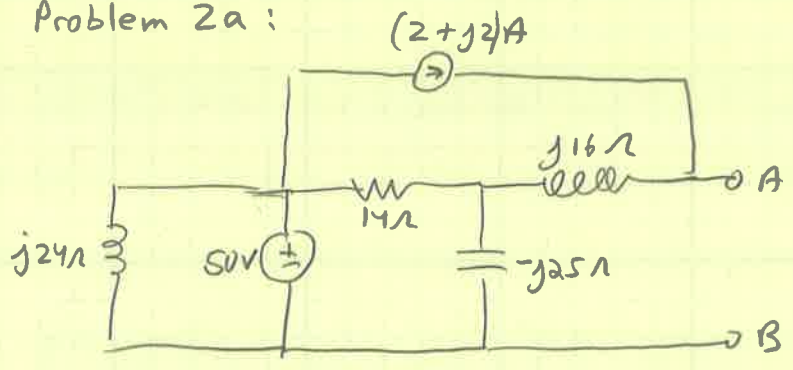 Problem 2a:
(2+j2)A
j16Ω
A
14Ω
j24Ω
50V
+
-
-j25Ω
B